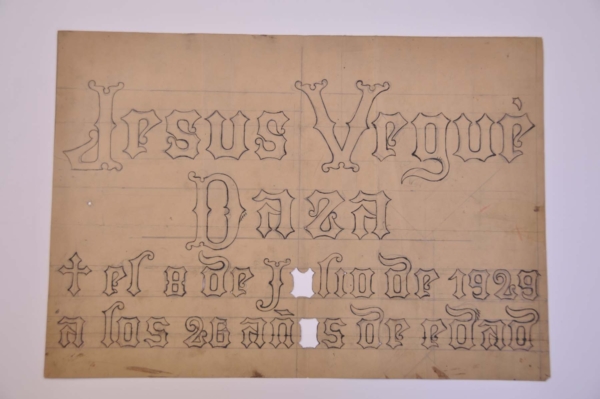 Jesus Vegué
Daza
✝ el 8 de J lio de 1929
a los 26 añ s de edad